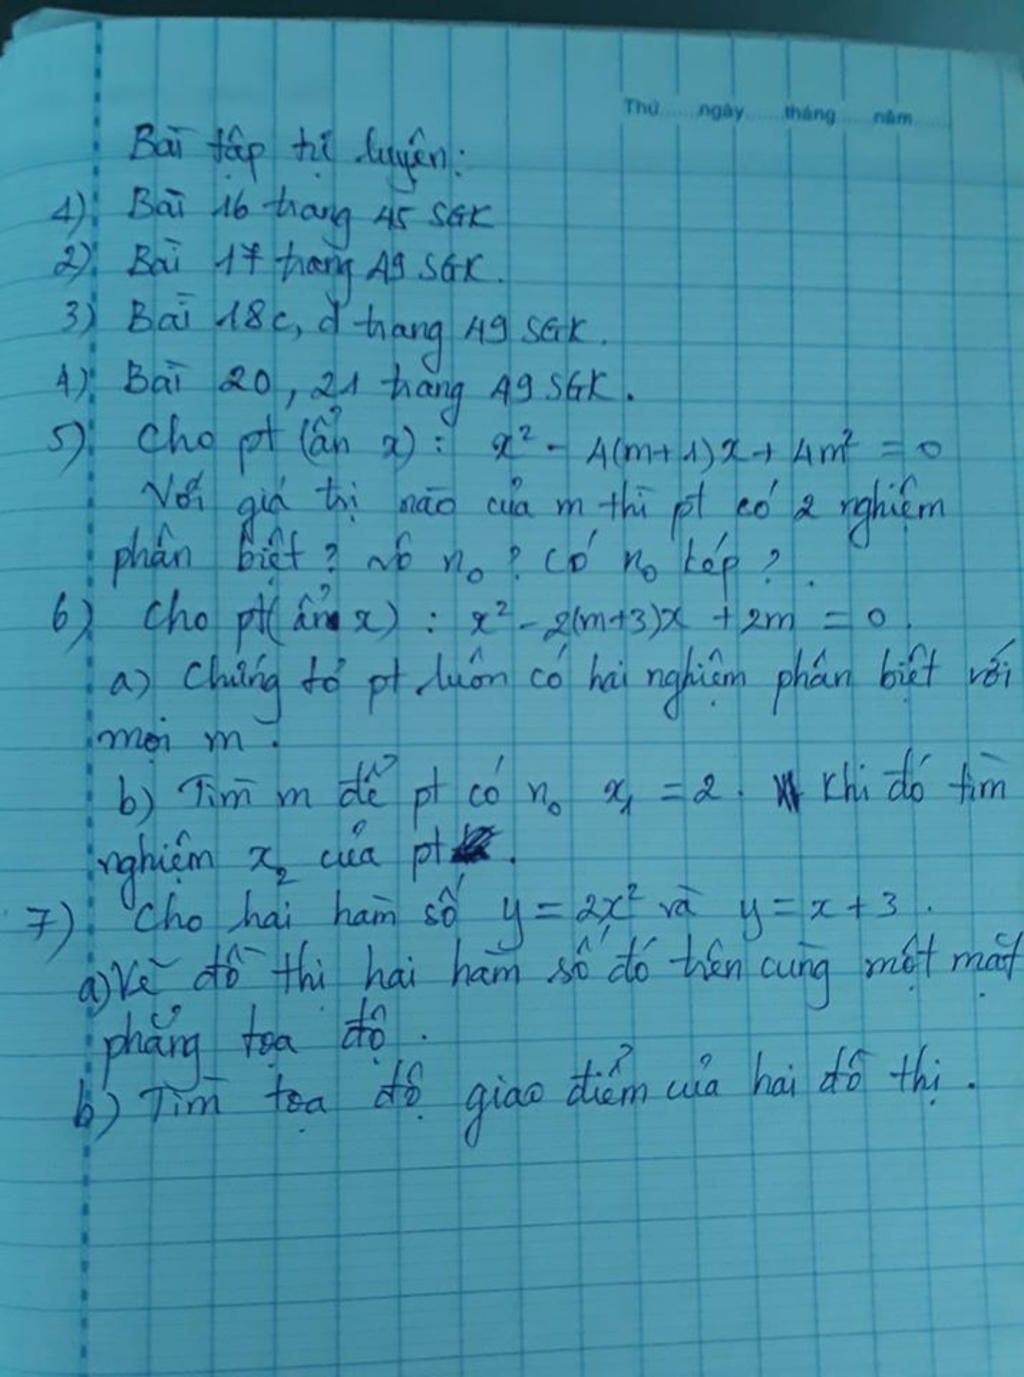 Thứ......ngày......tháng......năm......
Bài tập tự luyện:
1) Bài 16 trang 45 SGK
2) Bài 17 trang 49 SGK.
3) Bài 18c, d trang 49 SGK.
4) Bài 20, 21 trang 49 SGK.
5) Cho pt (ẩn x): x² - 4(m+1)x + 4m² = 0
Với giá trị nào của m thì pt có 2 nghiệm
phân biệt? Vô n₀? Có n₀ kép?
6) Cho pt (ẩn x): x² - 2(m+3)x + 2m = 0.
a) Chứng tỏ pt luôn có hai nghiệm phân biệt với
mọi m.
b) Tìm m để pt có n₀ x₁ = 2. Khi đó tìm
nghiệm x₂ của pt.
7) Cho hai hàm số y = 2x² và y = x + 3.
a) Vẽ đồ thị hai hàm số đó trên cùng một mặt
phẳng tọa độ.
b) Tìm tọa độ giao điểm của hai đồ thị.